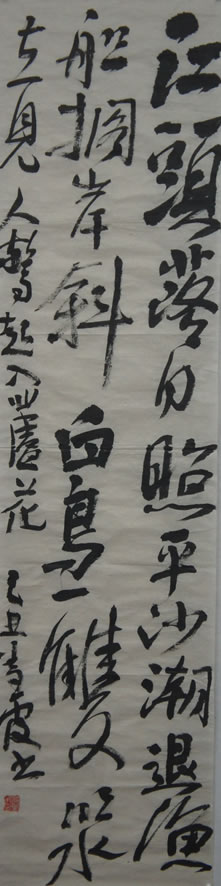 江頭落日照平沙潮退渔
船搁岸斜白鳥一雙临水
立見人驚起入蘆花 己丑霞书